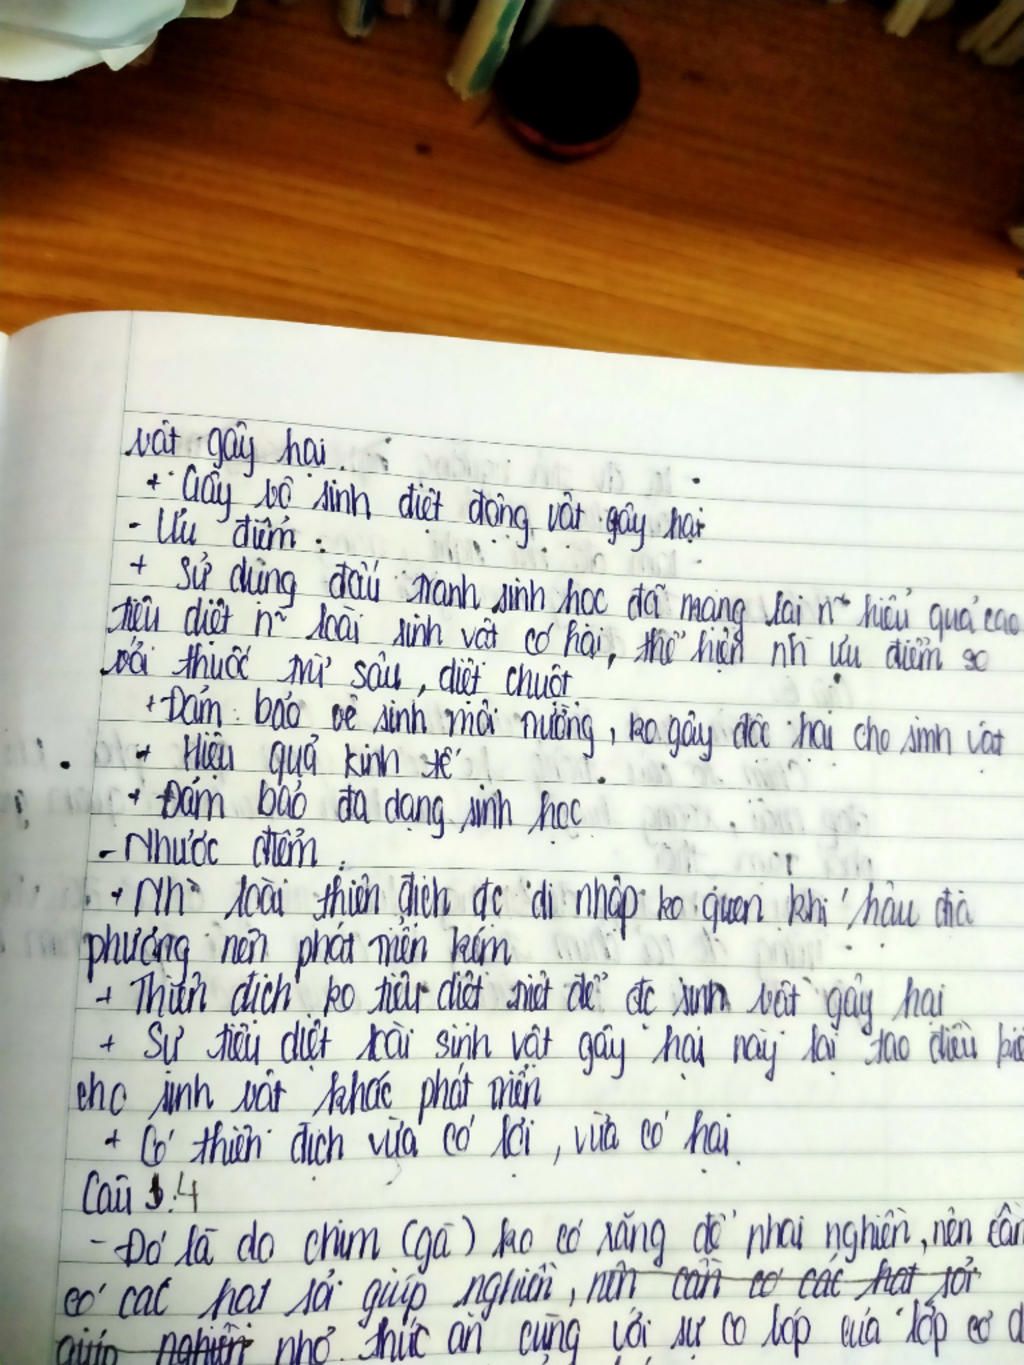 vật gây hại.
+ Gây vô sinh diệt động vật gây hại
- Ưu điểm:
+ Sử dụng đấu tranh sinh học đã mang lại n~ hiệu quả cao
tiêu diệt n~ loài sinh vật có hại, thể hiện nh ưu điểm so
với thuốc trừ sâu, diệt chuột
+ Đảm bảo vệ sinh môi trường, ko gây độc hại cho sinh vật
+ Hiệu quả kinh tế
+ Đảm bảo đa dạng sinh học
- Nhược điểm:
+ Nh` loài thiên địch đc di nhập ko quen khí hậu địa
phương nên phát triển kém
+ Thiên địch ko tiêu diệt triệt để đc sinh vật gây hại
+ Sự tiêu diệt loài sinh vật gây hại này lại tạo điều kiệ
cho sinh vật khác phát triển
+ Có thiên địch vừa có lợi, vừa có hại.
Câu 4
- Đó là do chim (gà) ko có răng để nhai nghiền, nên cần
có các hạt sỏi giúp nghiền, nên cần có các hạt sỏi
giúp nghiền nhỏ thức ăn cùng với sự co bóp của lớp cơ d